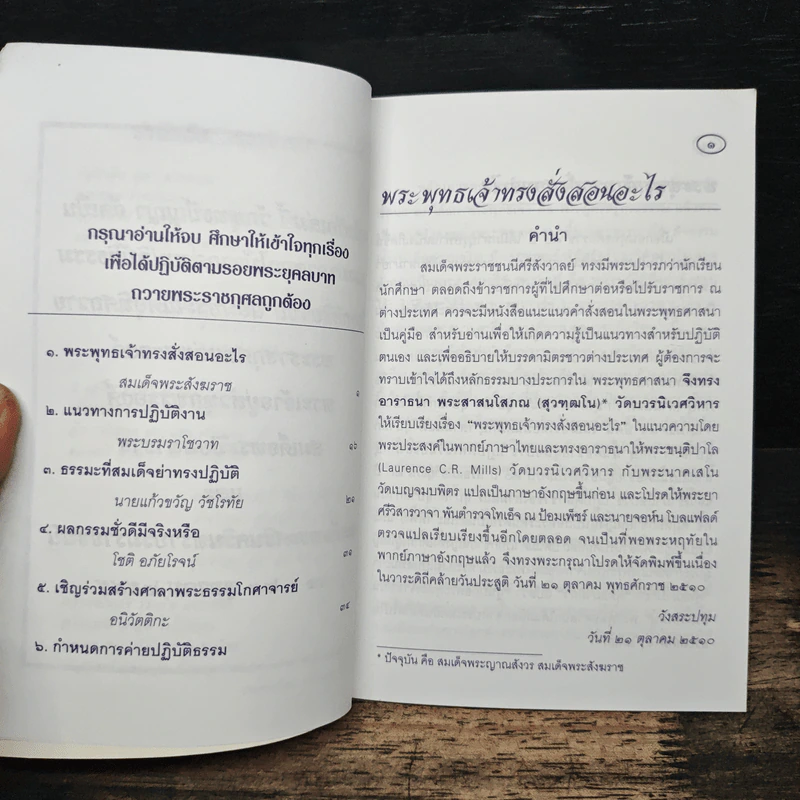 กรุณาอ่านให้จบ ศึกษาให้เข้าใจทุกเรื่อง
เพื่อได้ปฏิบัติตามรอยพระยุคลบาท
ถวายพระราชกุศลถูกต้อง
๑. พระพุทธเจ้าทรงสั่งสอนอะไร
สมเด็จพระสังฆราช ๑
๒. แนวทางการปฏิบัติงาน
พระบรมราโชวาท ๑๖
๓. ธรรมะที่สมเด็จย่าทรงปฏิบัติ
นายแก้วขวัญ วัชโรทัย ๒๑
๔. ผลกรรมชั่วดีมีจริงหรือ
โชติ อภัยโรจน์ ๓๑
๕. เชิญร่วมสร้างศาลาพระธรรมโกศาจารย์
อนิวัตติกะ ๓๔
๖. กำหนดการค่ายปฏิบัติธรรม
๑
พระพุทธเจ้าทรงสั่งสอนอะไร
คำนำ
สมเด็จพระราชชนนีศรีสังวาลย์ ทรงมีพระปรารภว่านักเรียน
นักศึกษา ตลอดถึงข้าราชการผู้ที่ไปศึกษาต่อหรือไปรับราชการ ณ
ต่างประเทศ ควรจะมีหนังสือแนะแนวคำสั่งสอนในพระพุทธศาสนา
เป็นคู่มือ สำหรับอ่านเพื่อให้เกิดความรู้เป็นแนวทางสำหรับปฏิบัติ
ตนเอง และเพื่ออธิบายให้บรรดามิตรชาวต่างประเทศ ผู้ต้องการจะ
ทราบเข้าใจได้ถึงหลักธรรมบางประการใน พระพุทธศาสนา จึงทรง
อาราธนา พระสาสนโสภณ (สุวฑฺฒโน)* วัดบวรนิเวศวิหาร
ให้เรียบเรียงเรื่อง "พระพุทธเจ้าทรงสั่งสอนอะไร" ในแนวความโดย
พระประสงค์ในพากย์ภาษาไทยและทรงอาราธนาให้พระขนฺติปาโล
(Laurence C.R. Mills) วัดบวรนิเวศวิหาร กับพระนาคเสโน
วัดเบญจมบพิตร แปลเป็นภาษาอังกฤษขึ้นก่อน และโปรดให้พระยา
ศรีวิสารวาจา พันตำรวจโทเอ็จ ณ ป้อมเพ็ชร์ และนายจอห์น โบลแฟลด์
ตรวจแปลเรียบเรียงขึ้นอีกโดยตลอด จนเป็นที่พอพระหฤทัยใน
พากย์ภาษาอังกฤษแล้ว จึงทรงพระกรุณาโปรดให้จัดพิมพ์ขึ้นเนื่อง
ในวาระดิถีคล้ายวันประสูติ วันที่ ๒๑ ตุลาคม พุทธศักราช ๒๕๑๐
วังสระปทุม
วันที่ ๒๑ ตุลาคม ๒๕๑๐
* ปัจจุบัน คือ สมเด็จพระญาณสังวร สมเด็จพระสังฆราช